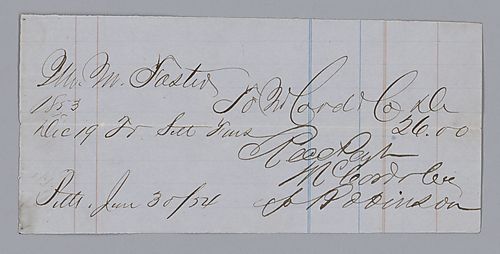 Mr. M. Foster
To McCord & Co Dr
1853
Dec 19 To Sett Furs 26.00
Recd Payt
McCord & Co
Pitts. Jan 30/54 J Robinson